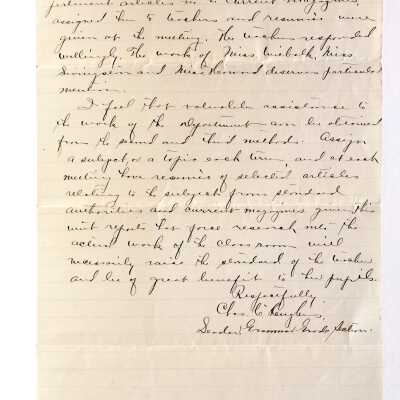 pertinent articles in current magazines,
assigned them to teachers and resumes were
given at the meeting. The teachers responded
willingly. The work of Miss Miss
and Miss Howard deserves particular
mention.
I feel that valuable assistance to
the work of the department can be obtained
from the second and third methods. Assign
a subject or a topic each term, and at each
meeting have resumes of selected articles
relating to the subject from standard
authorities and current magazines given, this
with reports that force research into the
actual work of the classroom will
necessarily raise the standard of the teacher
and be of great benefit to her pupils.
Respectfully
Chas. C. Hughes,
Leader Grammar Grade Section.